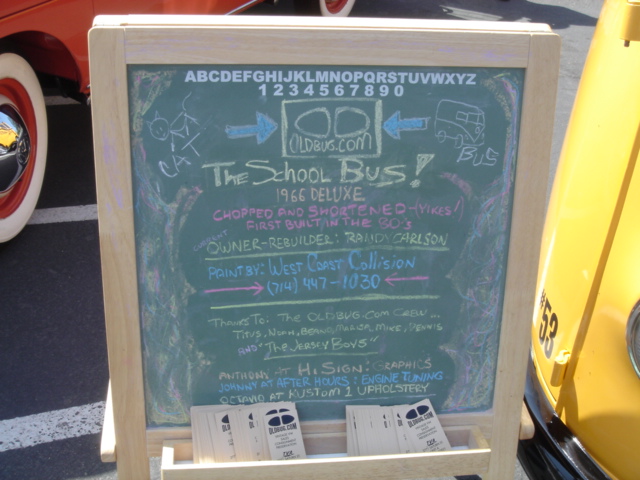 ABCDEFGHIJKLMNOPQRSTUVWXYZ
1234567890
OLDBUG.COM
CAT
BUS
THE SCHOOL BUS!
1966 DELUXE
CHOPPED AND SHORTENED-(YIKES!)
FIRST BUILT IN THE 80'S
CURRENT OWNER-REBUILDER: RANDY CARLSON
PAINT BY: WEST COAST COLLISION
(714) 447-1030
THANKS TO: THE OLDBUG.COM CREW...
TITUS, NOAH, MARIA, MIKE, DENNIS
AND "THE JERSEY BOYS"
ANTHONY AT HI SIGN: GRAPHICS
JOHNNY AT AFTER HOURS: ENGINE TUNING
OCTAVIO AT KUSTOM 1 UPHOLSTERY
OLDBUG.COM
OLDBUG.COM
53